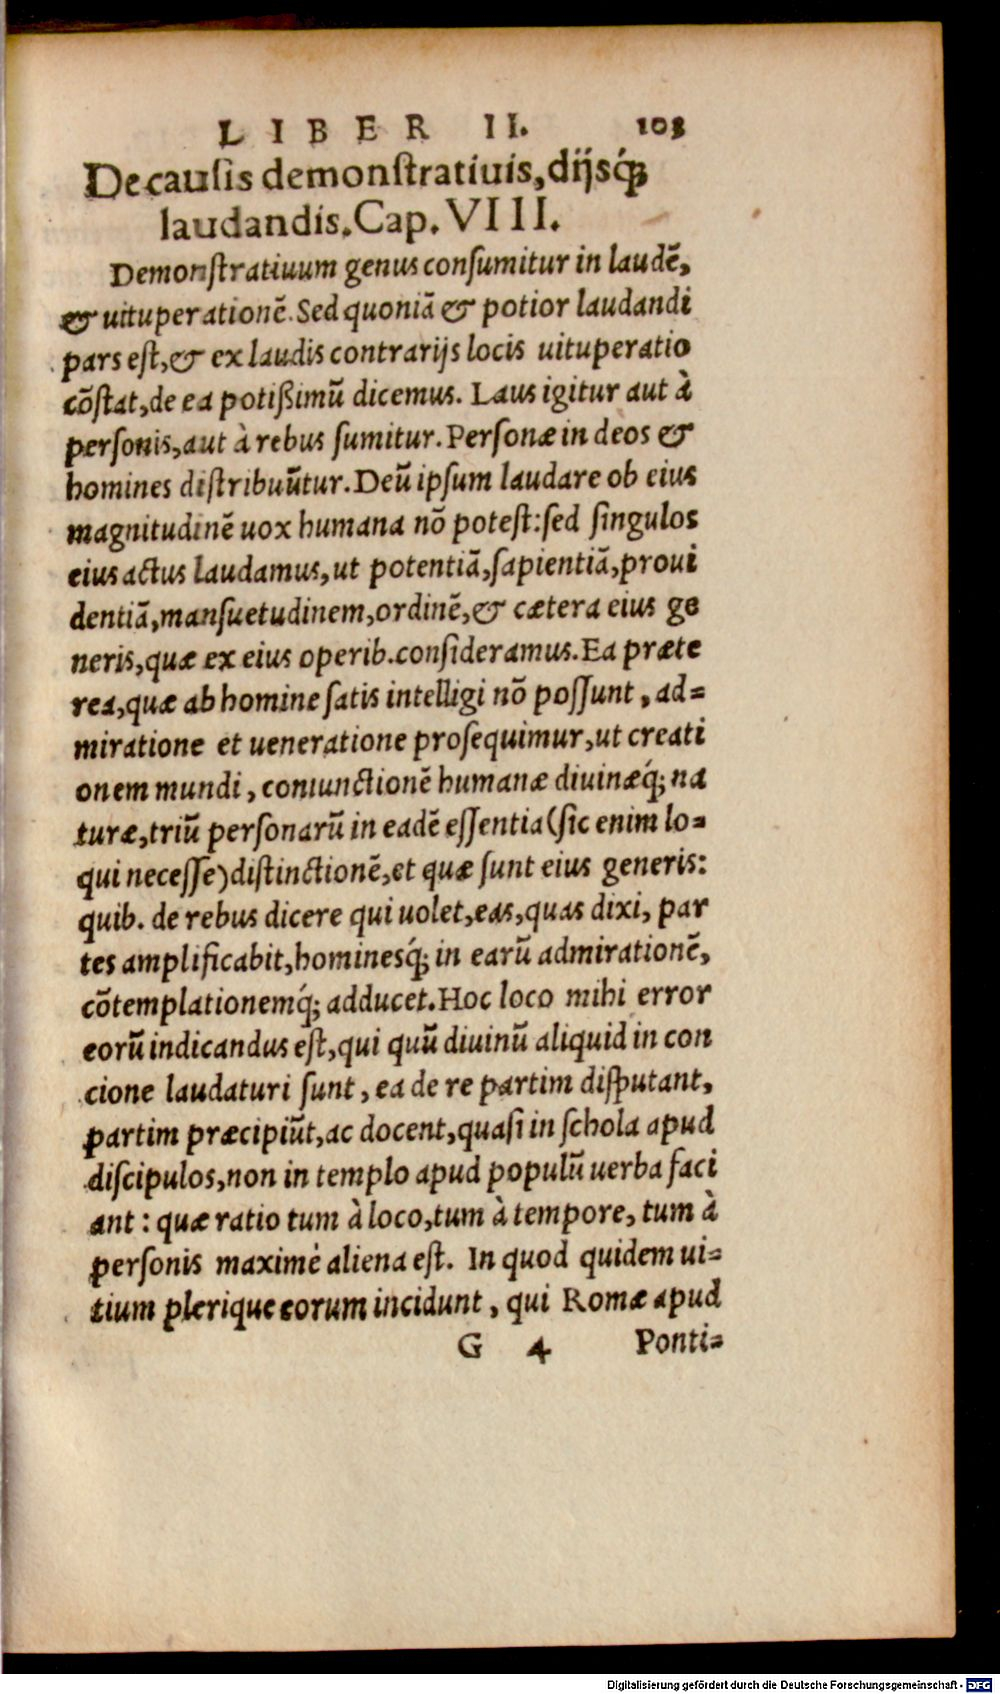 LIBER II. 103
De causis demonstratiuis, dijsq́;
laudandis. Cap. VIII.
Demonstratiuum genus consumitur in laudē,
& uituperationē. Sed quoniā & potior laudandi
pars est, & ex laudis contrarijs locis uituperatio
cōstat, de ea potißimū dicemus. Laus igitur aut à
personis, aut à rebus sumitur. Personæ in deos &
homines distribuūtur. Deū ipsum laudare ob eius
magnitudinē uox humana nō potest: sed singulos
eius actus laudamus, ut potentiā, sapientiā, proui
dentiā, mansuetudinem, ordinē, & cætera eius ge
neris, quæ ex eius operib. consideramus. Ea præte
rea, quæ ab homine satis intelligi nō possunt, ad=
miratione et ueneratione prosequimur, ut creati
onem mundi, coniunctionē humanæ diuinæq́; na
turæ, triū personarū in eadē essentia (sic enim lo=
qui necesse) distinctionē, et quæ sunt eius generis:
quib. de rebus dicere qui uolet, eas, quas dixi, par
tes amplificabit, hominesq́; in earū admirationē,
cōtemplationemq́; adducet. Hoc loco mihi error
eorū indicandus est, qui quū diuinū aliquid in con
cione laudaturi sunt, ea de re partim disputant,
partim præcipiūt, ac docent, quasi in schola apud
discipulos, non in templo apud populū uerba faci
ant: quæ ratio tum à loco, tum à tempore, tum à
personis maximè aliena est. In quod quidem ui=
tium plerique eorum incidunt, qui Romæ apud
G 4 Ponti=
Digitalisierung gefördert durch die Deutsche Forschungsgemeinschaft - DFG